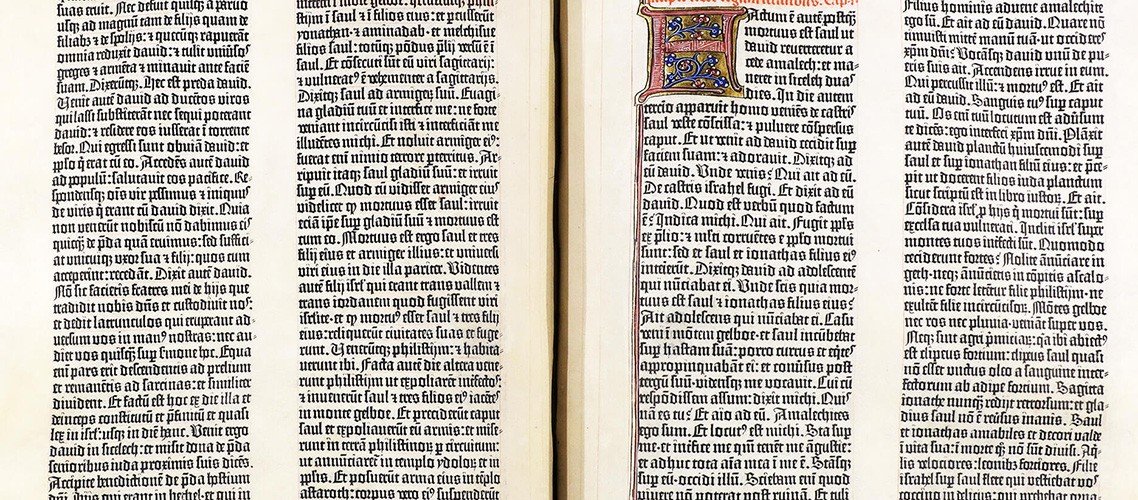 fuit. Nec defuit quicq̃ a paruo
usq; ad magnū tam de filijs quam de
filiabz ⁊ de spolijs: ⁊ quecūq; rapuerāt
omnia reduxit dauid: ⁊ tulit vniūsos
greges ⁊ armēta ⁊ minauit ante faciē
suam. Dixerūtq;. Hec est preda dauid.
Uenit autē dauid ad ducētos viros
qui lassi substiterant nec sequi poterant
dauid: ⁊ residere eos iusserat ī torrente
besor. Qui egressi sunt obuiā dauid: et
pp̄lo q̄ erat cū eo. Accedēs autē dauid
ad populū: salutauit eos pacifice. Re-
spondensq; oīs vir pessimus ⁊ iniquus
de viris q̄ erant cū dauid dixit. Quia
non venerūt nobiscū nō dabimus eis
quicq̄ de p̄da quā eruimus: sed suffici-
at vnicuiq; vxor sua ⁊ filij: quos cum
acceperint: recedāt. Dixit autē dauid.
Nō sic facietis fratres mei de hijs que
tradidit nobis dn̄s et custodiuit nos:
et dedit latrunculos qui eruperant ad-
uersum vos in manus nostras: nec au-
diet vos quisq̄ sup sermone hoc. Equa
enī pars erit descendentis ad prelium
et remanētis ad sarcinas: et similiter
diuident. Et factū est hoc ex die illa et
deinceps constitutū et p̄finitū et quasi
lex in isrl: usq; in diē hanc. Venit ergo
dauid in sicelech: et misit dona de p̄da
senioribus iuda proximis suis dicēs.
Accipite benedictionē de p̄da hostium
dn̄i. Hijs qui erant in bethel: et qui in
stijm ī saul ⁊ ī filios eius: et pcusserūt
yonathan: ⁊ aminadab: et melchisue
filios saul: totūq; pōdus p̄lij versū ē ī
saul. Et cōsecuti sūt eū viri sagitarij:
⁊ vulneratus ē vehementer a sagitarijs.
Dixitq; saul ad armigerū suū. Euagi-
na gladiū tuū et interfice me: ne forte
veniant incircūcisi isti ⁊ interficiāt me
illudētes michi. Et noluit armiger eius:
fuerat enī nimio terrore pterritus. Ar-
ripuit itaq; saul gladiū suū: et irruit
sup eū. Quod cū vidisset armiger eius
videlicet q mortuus esset saul: irruit
etiā ip̄e sup gladiū suū ⁊ mortuus est
cum eo. Mortuus est ergo saul et tres
filij eius et armiger illius: et uniuersi
viri eius in die illa pariter. Videntes
autē filij isrl qui erant trans vallem ⁊
trans iordanem quod fugissent viri
israhelite: et q mortuus esset saul ⁊ tres filij
eius: reliquerūt ciuitates suas et fuge-
runt. Venerūtq; philistijm: ⁊ habita-
uerunt ibi. Facta autē die altera vene-
runt philistijm ut expoliarēt interfectos:
⁊ inuenerūt saul ⁊ tres filios eius iacētes
in monte gelboe. Et preciderūt caput
saul et expoliauerūt eū armis: et mise-
runt in terrā philistinoꝝ p circuitum:
ut annunciaret in templo ydoloꝝ et in
pplis. Et posuerūt arma eius in templo
astaroth: corpus vero eius suspenderūt
Factum ē autē postq̄
mortuus est saul ut
dauid reuerteretur a
cede amalech: et ma-
neret in sicelech duos
dies. In die autem
tercio apparuit homo veniēs de castris
saul veste cōscissa: ⁊ puluere cōspersus
caput. Et ut venit ad dauid cecidit sup
faciem suam: ⁊ adorauit. Dixitq; ad
eū dauid. Vnde venis? Qui ait ad eū.
De castris israhel fugi. Et dixit ad eū
dauid. Quod est verbū quod factum
ē? Indica michi. Qui ait. Fugit pp̄ls
ex p̄lio: ⁊ m̄lti corruētes e pp̄lo mortui
sunt: sed et saul et ionathas filius eius
interierūt. Dixitq; dauid ad adolescentē
qui nūciabat ei. Vnde scis quia mor-
tuus est saul ⁊ ionathas filius eius?
Ait adolescens qui nūciabat ei. Casu
veni ī mōtem gelboe: et saul incūbebat
sup hastam suā: porro currus et eq̄tes
appropinquabāt ei: et conūsus post
tergū suū: vidensq; me vocauit. Cui cū
respōdissem assum: dixit michi. Quis
nā es tu? Et aio ad eū. Amalechites
ego sum. Et locutus est michi. Sta sup
me: et ītefice me qm̄ tenēt me āgustie:
et adhuc tota aīa mea ī me ē. Stāsq;
sup eū: occidi illū. Sciebam enī quod
viuere nō poterat post ruinā. Et tuli
filius hominis aduene amalechite
ego sū. Et ait ad eū dauid. Quare nō
timuisti mitte manū tuā: ut occideres
xp̄m dn̄i? Vocāsq; dauid unū de pu-
eris suis ait. Accedens irrue in eum.
Qui percussit illū: ⁊ mortuus est. Et ait
ad eū dauid. Sanguis tuus sup caput
tuū. Os enī tuū locutum est aduersū
te dicēs: ego interfeci xp̄m dn̄i. Plāxit
autē dauid planctū huiuscemodi sup
saul et sup ionathan filiū eius: et p̄ce-
pit ut docerent filios iuda planctum
sicut scriptū est in libro iustoꝝ. Et ait.
Cōsidera isrl p hijs q̄ mortui sūt: sup
excelsa tua vulnerati. Incliti isrl super
montes tuos interfecti sūt. Quomodo
ceciderunt fortes? Nolite ānūciare in
geth: neq; ānūcietis in cōpitis ascalo-
nis: ne forte letētur filie philistijm: ne
exultēt filie incircūcisoꝝ. Mōtes gelboe
nec ros nec pluuia veniāt super vos.
Neq; sunt agri p̄miciaꝝ: q̄a ibi abiectus
est clipeus fortium: clipeus saul quasi
nō esset vnctus oleo a sanguine inter-
fectorum ab adipe fortium. Sagitta
ionathe nunq̄ redijt retrorsum: et gla-
dius saul nō ē reūsus inanis. Saul
et ionathas amabiles et decori valde
in vita sua: ī morte qq nō sūt diuisi. Aq̄-
lis velociores: leonibz fortiores. Filie
israhel sup saul flete: qui vestiebat vos